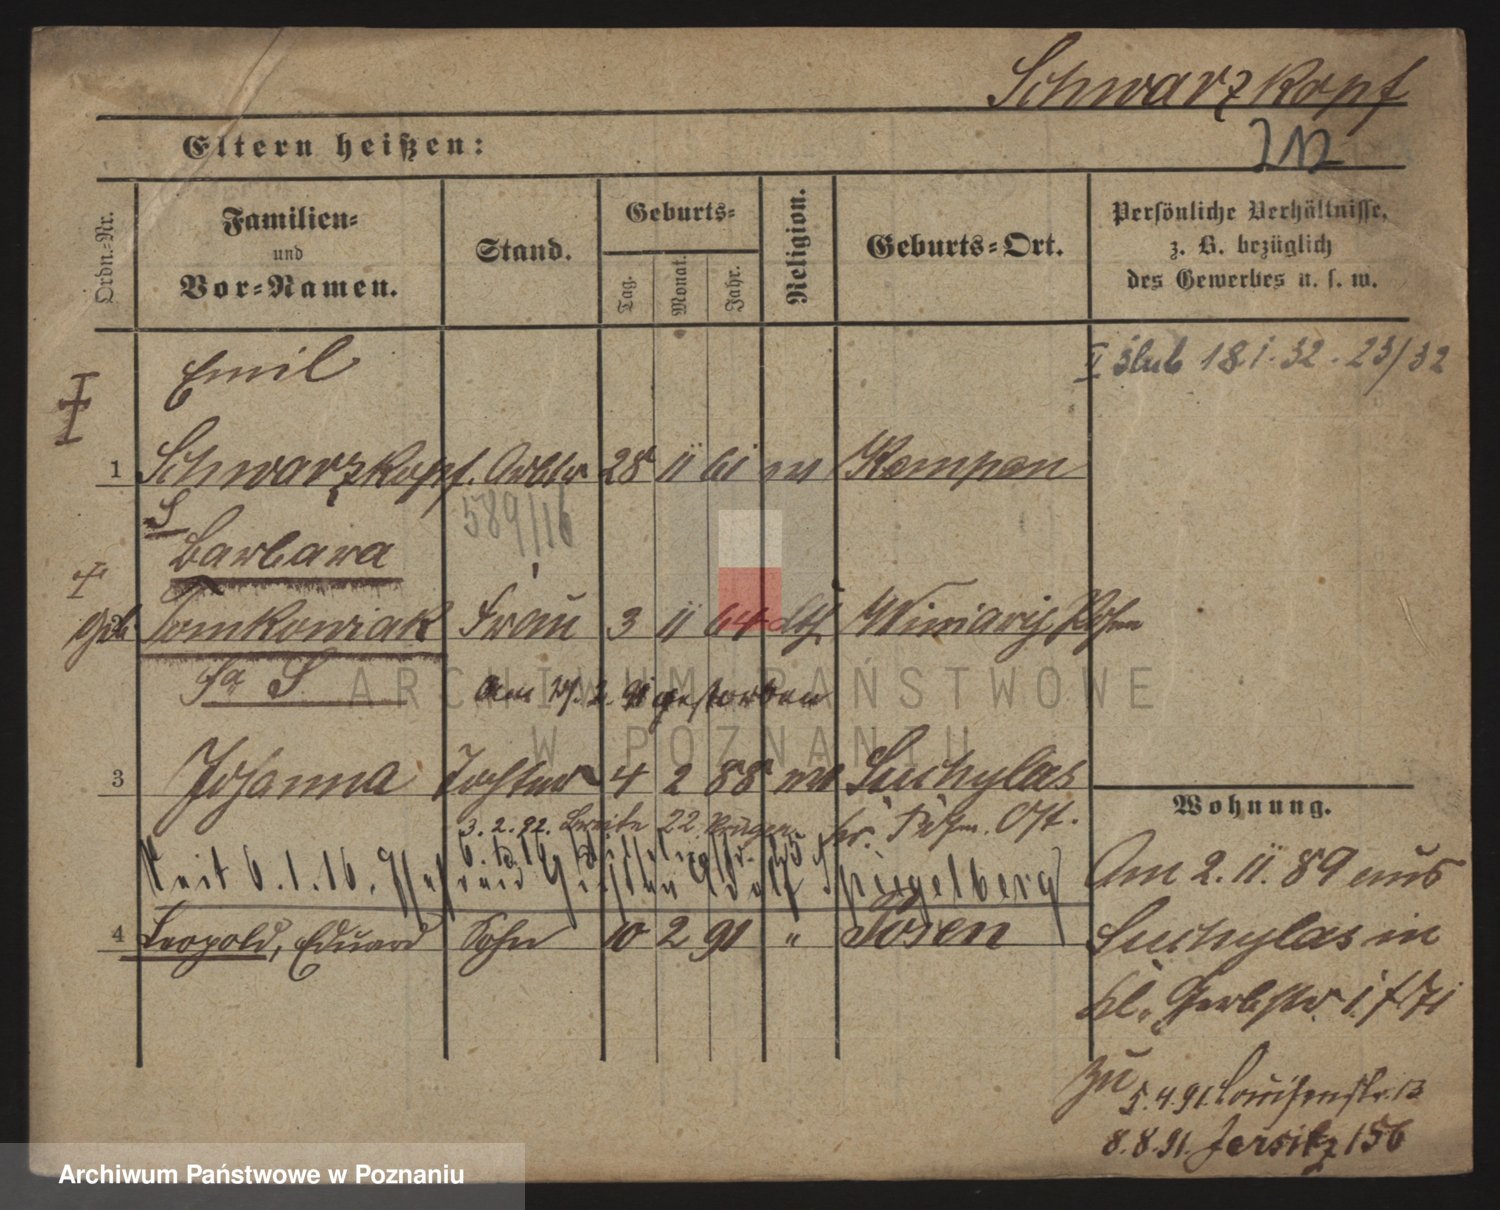 Schwarzkopf
Eltern heißen:
Ordn.-Nr.
Familien-
und
Vor-Namen.
Stand.
Geburts-
Tag.
Monat.
Jahr.
Religion.
Geburts-Ort.
Persönliche Verhältnisse,
z. B. bezüglich
des Gewerbes u. s. w.
Emil
II ślub 18.1.32. 23/32
1 Schwarzkopf. Arbtr 28 11 61 Kempen
589/16
Barbara
geb. 2 Tomkowiak Frau 3 11 64 Winiary, Posen
Am 2. 91 gestorben
3 Johanna Tochter 4 2 88 Suchylas
3. 2. 92. Breite 22 Kr. Posen. Ost.
Seit 6.1.16. Spiegelberg
4 Leopold, Eduard Sohn 10 2 91 " Posen
Wohnung.
Am 2. 11. 89 aus
Suchylas in
Kl. Gerbstr.
zu
5.4.91. Louisenstr. 13
8.8.91. Jersitz 156
ARCHIWUM PAŃSTWOWE
W POZNANIU
Archiwum Państwowe w Poznaniu